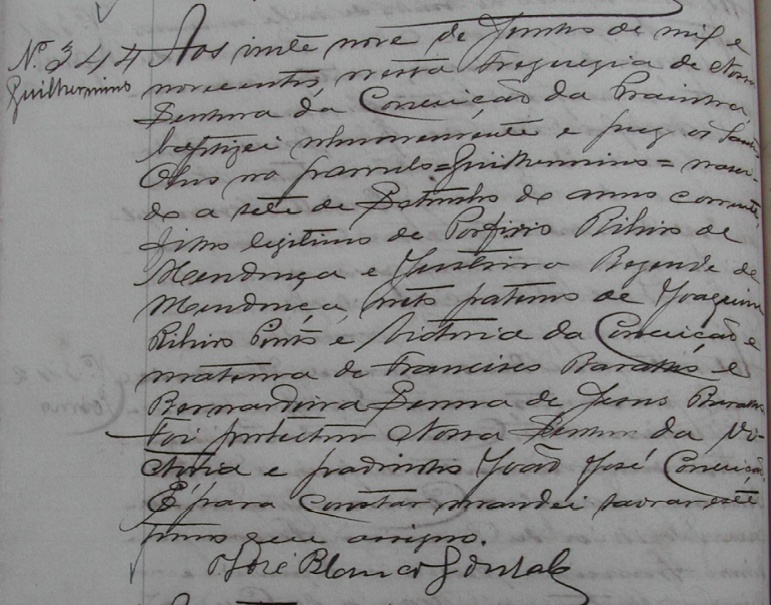 Nº 344
Guilhermino
Aos vinte nove de Junho de mil e
novecentos, nesta Freguezia de Nossa
Senhora da Conceição da
baptizei solemnemente e puz os Santos
Oleos no parvulo = Guilhermino = nasci-
do a sete de Setembro do anno corrente,
filho legitimo de Porfirio Ribiro de
Mendonça e Rezende de
Mendonça, neto paterno de Joaquim
Ribiro e Victoria da Conceição e
materna de Francisco e
Bernardina Senna de Jesus
Foi protectora Nossa Senhora da Vi-
ctoria e padrinho João José Conceição
E para constar mandei lavrar este
termo que assigno.
José Blanco